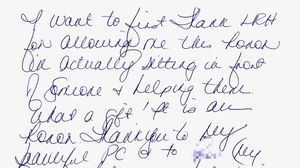 I want to first thank LRH
for allowing me this honor
in actually sitting in front
of someone & helping them.
What a gift! It is an
honor. Thank you to my
beautiful PC & to my